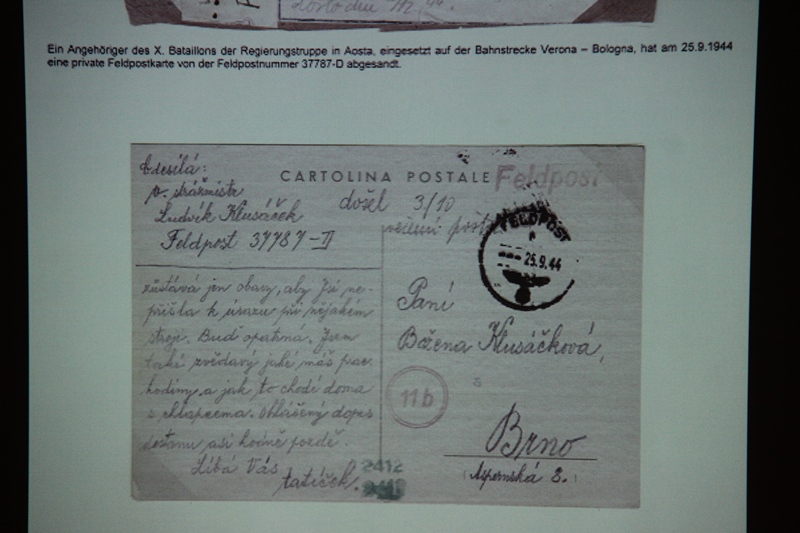 došlo dne
Ein Angehöriger des X. Bataillons der Regierungstruppe in Aosta, eingesetzt auf der Bahnstrecke Verona – Bologna, hat am 25.9.1944
eine private Feldpostkarte von der Feldpostnummer 37787-D abgesandt.
Odesílá:
CARTOLINA POSTALE
Feldpost
v. strážmistr
došel 3/10
Ludvík Klusáček
FELDPOST
Feldpost 37787-D
25.9.44
zůstává jen obavy, aby Jsi ne-
přišla k úrazu při nějakém
stroji. Buď opatrná. Jsem
také zvědavý jaké máš prac.
hodiny, a jak to chodí doma
s chlapcema. Ohlášený dopis
dostanu asi hodně pozdě.
Líbá Vás
tatíček.
Paní
Božena Klusáčková,
11b
8
Brno
Aspernská 8.
2412